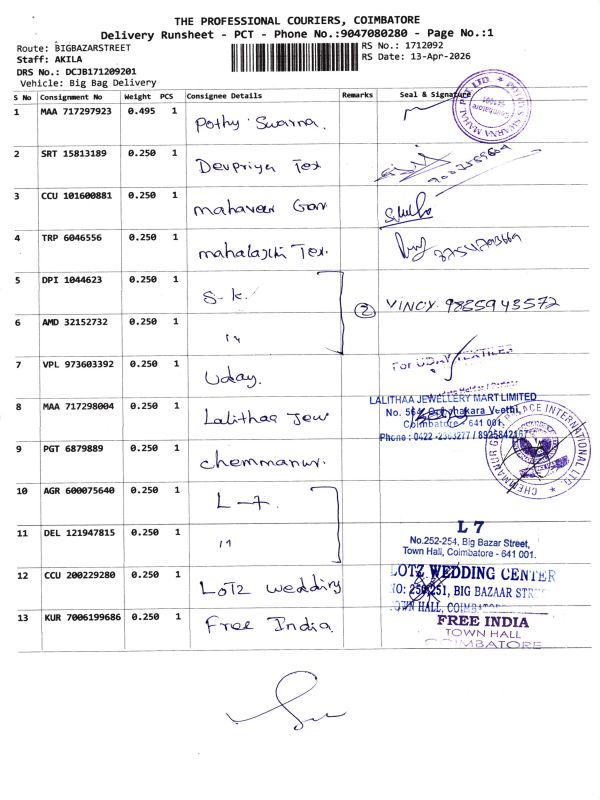 THE PROFESSIONAL COURIERS, COIMBATORE
Delivery Runsheet - PCT - Phone No.:9047080280 - Page No.:1
Route: BIGBAZARSTREET
RS No.: 1712092
Staff: AKILA
RS Date: 13-Apr-2026
DRS No.: DCJB171209201
Vehicle: Big Bag Delivery
S No Consignment No Weight PCS Consignee Details Remarks Seal & Signature
1 MAA 717297923 0.495 1 Pothy Swarna.
2 SRT 15813189 0.250 1 Devpriya Tex
3 CCU 101600881 0.250 1 mahaveer
4 TRP 6046556 0.250 1 mahalaxmi Tex.
5 DPI 1044623 0.250 1 S-k.
② VINOY. 9865943572
6 AMD 32152732 0.250 1 "
7 VPL 973603392 0.250 1 Uday.
For UDAY TEXTILES
8 MAA 717298004 0.250 1 Lalithaa Jew
LALITHAA JEWELLERY MART LIMITED
No. 564, Veethi,
Coimbatore - 641 001.
Phone : 0422
9 PGT 6879889 0.250 1 chemmanur.
INTERNATIONAL LTD.
10 AGR 600075640 0.250 1 L-7.
11 DEL 121947815 0.250 1 "
L 7
No.252-254, Big Bazar Street,
Town Hall, Coimbatore - 641 001.
12 CCU 200229280 0.250 1 LOTZ wedding
LOTZ WEDDING CENTER
BIG BAZAAR
13 KUR 7006199686 0.250 1 Free India
FREE INDIA
TOWN HALL
COIMBATORE